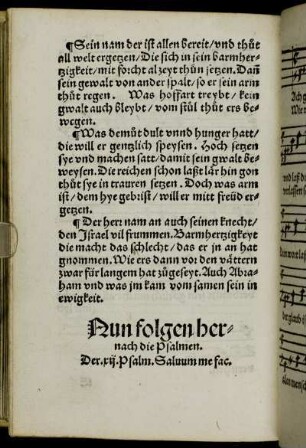 ¶Sein nam der ist allen bereit/vnd thůt
all welt ergetzen/Die sich in sein barmher-
tzigkeit/mit forcht al zeyt thůn setzen. Dañ
sein gewalt von ander spalt/so er sein arm
thůt regen. Was hoffart treybt/kein
gwalt auch bleybt/vom stůl thůt ers be-
wegen.
¶Was demůt dult vnnd hunger hatt/
die will er gentzlich speysen. Hoch setzen
sye vnd machen satt/damit sein gwalt be-
weysen. Die reichen schon laßt lär hin gon
thůt sye in trauren setzen. Doch was arm
ist/dem hye gebrist/will er mit freüd er-
getzen.
¶Der herr nam an auch seinen knecht/
den Israel vil frummen. Barmhertzigkeyt
die macht das schlecht/das er jn an hat
gnommen. Wie ers dann vor den vättern
zwar für langem hat zůgeseyt. Auch Abra-
ham vnd was jm kam vom samen sein in
ewigkeit.
Nun folgen her-
nach die Psalmen.
Der.xij.Psalm. Saluum me fac.